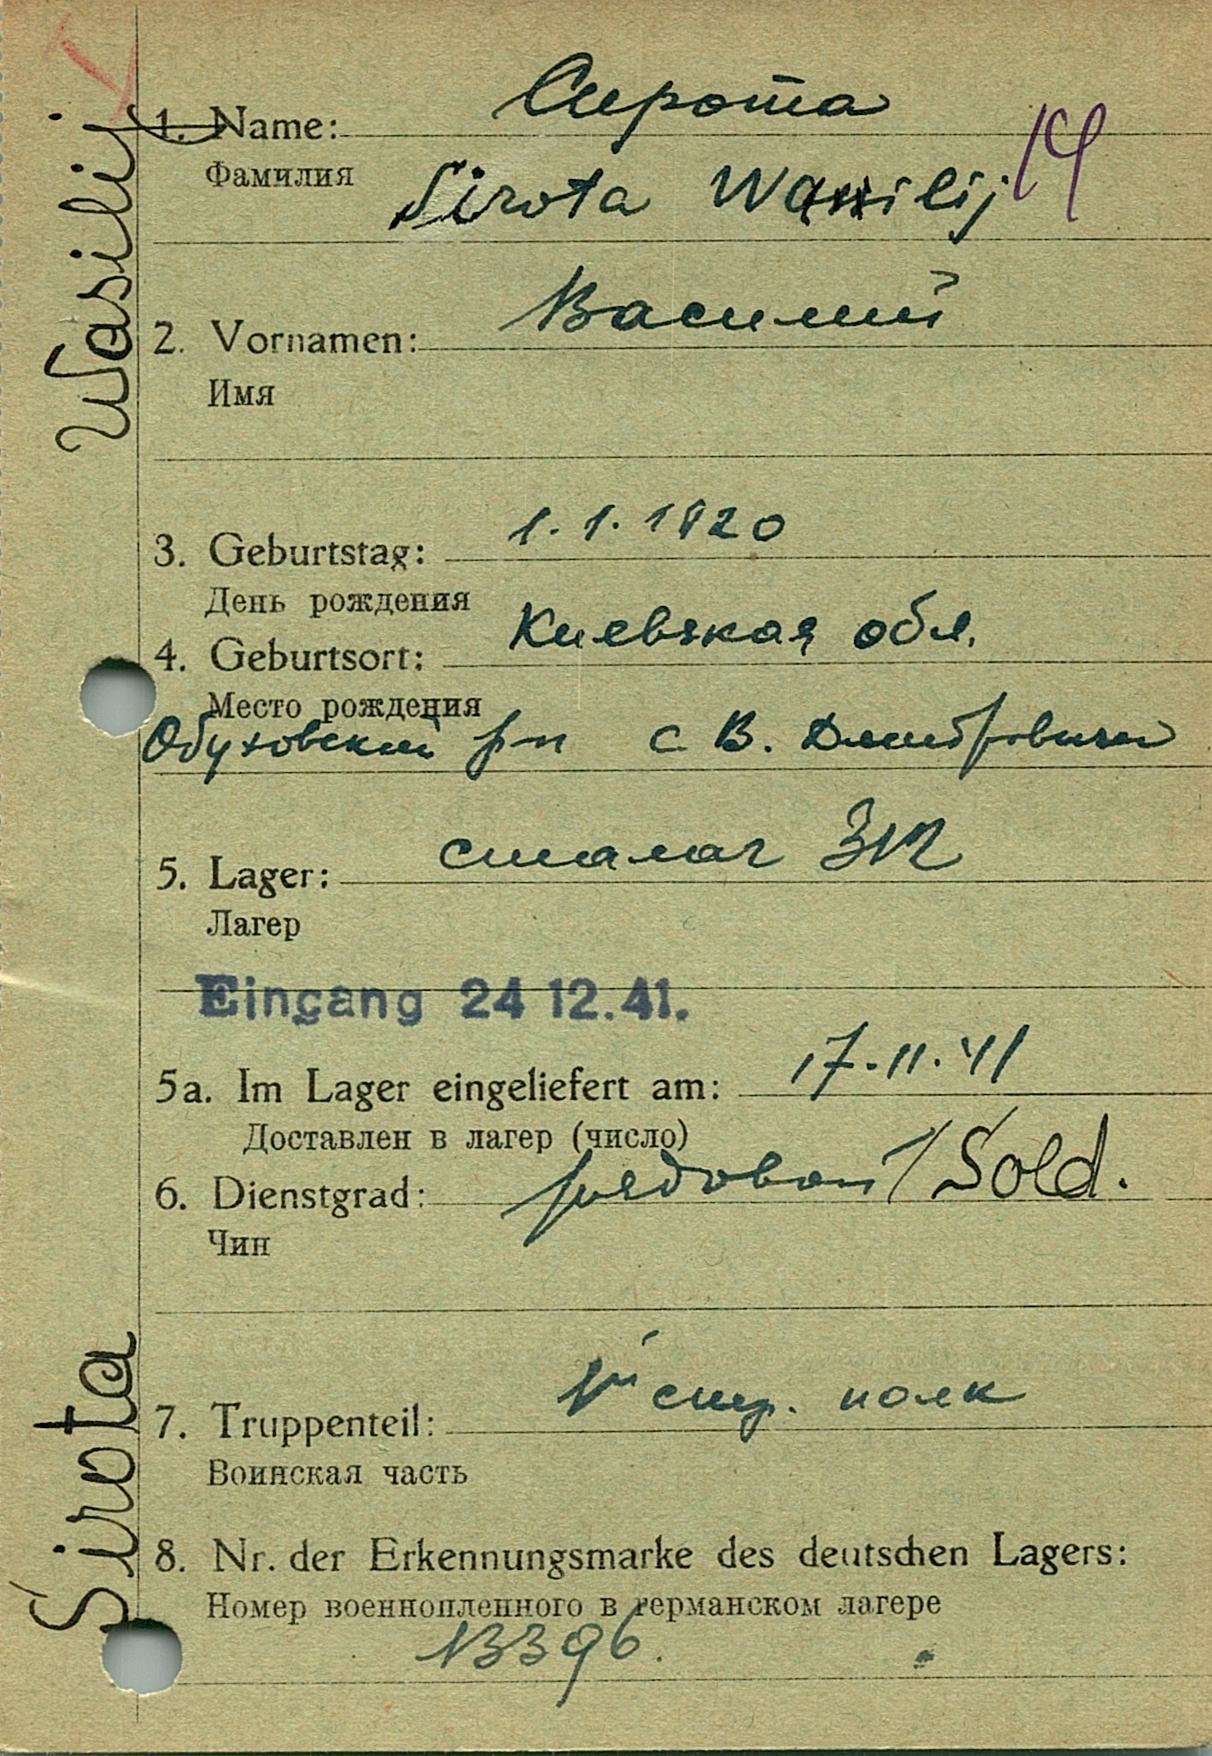 Сирота
1. Name:
Фамилия
Sirota Wassilij
14
Василий
2. Vornamen:
Имя
1.1.1920
3. Geburtstag:
День рождения
Киевская обл.
4. Geburtsort:
Место рождения
Обуховский р-н с В. Дмитровичи
сталаг
5. Lager:
Лагер
Eingang 24 12.41.
17.11.41
5a. Im Lager eingeliefert am:
Доставлен в лагер (число)
рядовой / Sold.
6. Dienstgrad:
Чин
стр. полк
7. Truppenteil:
Воинская часть
8. Nr. der Erkennungsmarke des deutschen Lagers:
Номер военнопленного в германском лагере
13396.
Sirota Wasilij